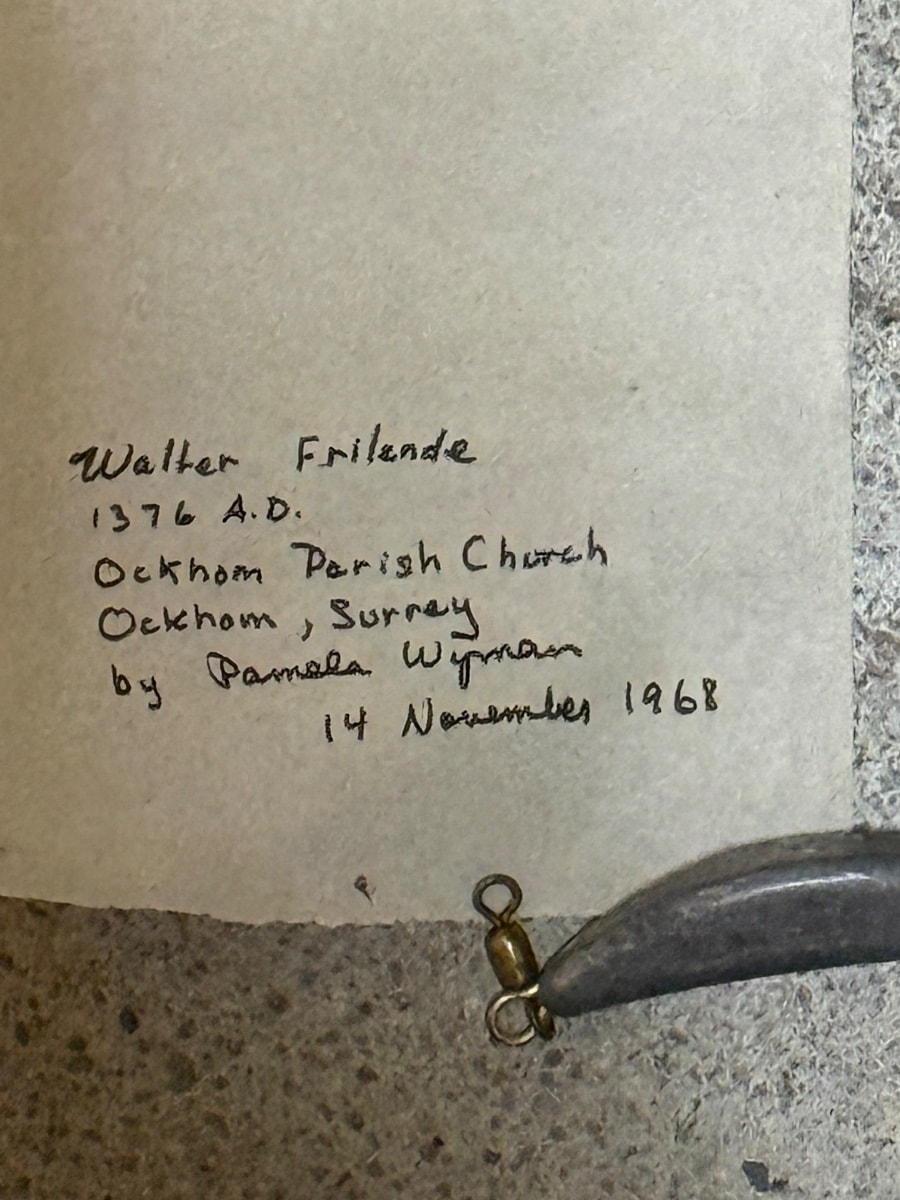 Walter Frilende
1376 A.D.
Ockham Parish Church
Ockham, Surrey
by Pamela Wyman
14 November 1968